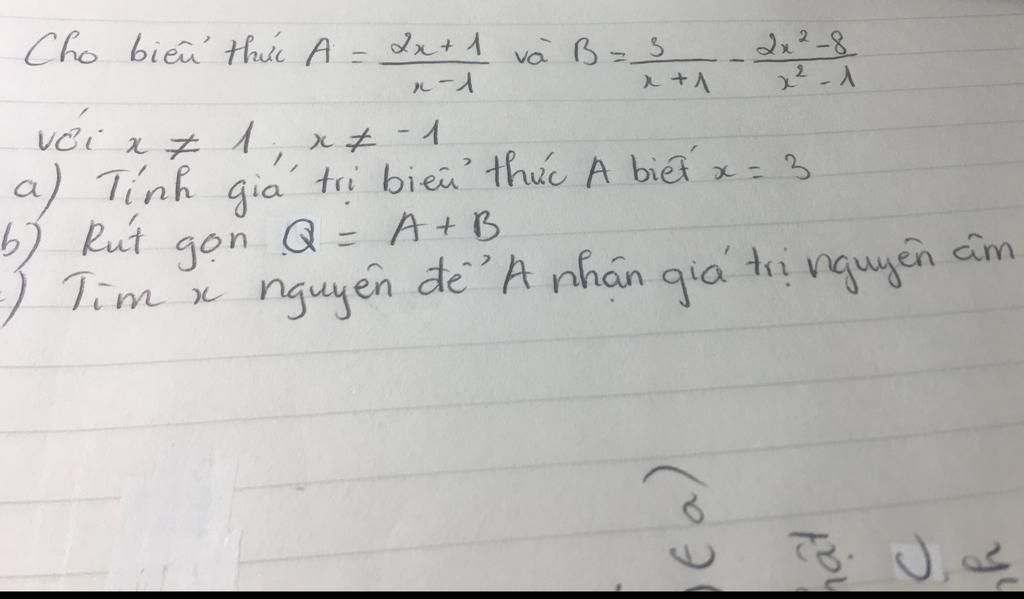 Cho biểu thức A = \frac{2x+1}{x-1} và B = \frac{3}{x+1} - \frac{2x²-8}{x²-1}
với x ≠ 1, x ≠ -1
a) Tính giá trị biểu thức A biết x = 3
b) Rút gọn Q = A + B
) Tìm x nguyên để A nhận giá trị nguyên âm